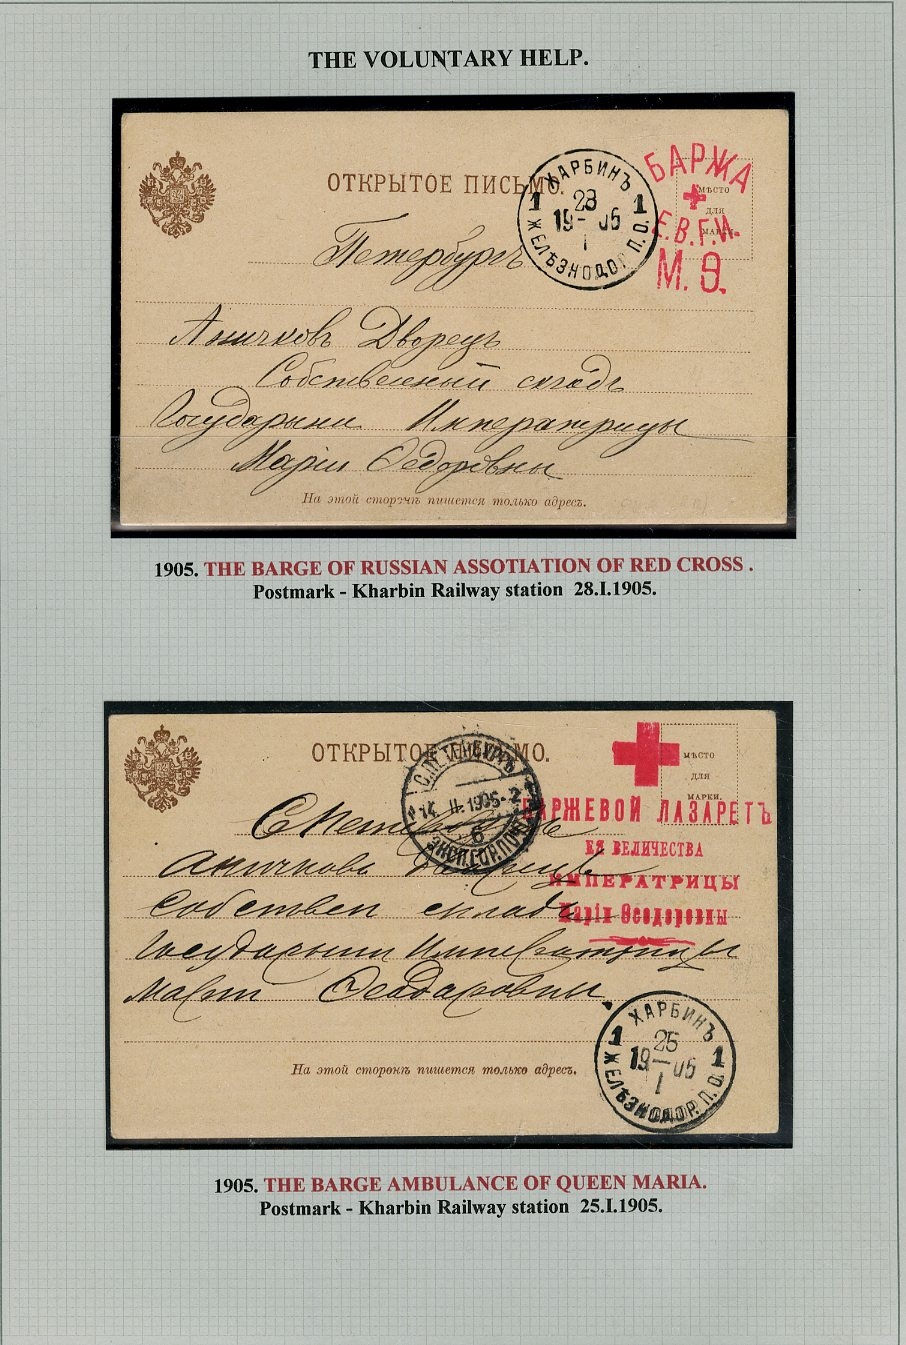 THE VOLUNTARY HELP.
ОТКРЫТОЕ ПИСЬМО.
ХАРБИНЪ
1 28 1
19-05
I
ЖЕЛѢЗНОДОР. П. О.
БАРЖА
Е.В.Г.И.
М. Ѳ.
МѢСТО
ДЛЯ
МАРКИ.
Петербургъ
Аничковъ Дворецъ
Собственный складъ
Государыни Императрицы
Маріи Ѳедоровны
На этой сторонѣ пишется только адресъ.
1905. THE BARGE OF RUSSIAN ASSOTIATION OF RED CROSS .
Postmark - Kharbin Railway station 28.I.1905.
ОТКРЫТОЕ ПИСЬМО.
С.ПЕТЕРБУРГЪ
14. II. 1905. 2
6
ЭКСП.ГОР.ПОЧТ.
МѢСТО
ДЛЯ
МАРКИ.
БАРЖЕВОЙ ЛАЗАРЕТЪ
ЕЯ ВЕЛИЧЕСТВА
ИМПЕРАТРИЦЫ
Маріи Ѳеодоровны
С Петербургъ
Аничкова
Собствен склада
Государыни Императрицы
Маріи Ѳеадаровны
На этой сторонѣ пишется только адресъ.
ХАРБИНЪ
1 25 1
19-05
I
ЖЕЛѢЗНОДОР. П. О.
1905. THE BARGE AMBULANCE OF QUEEN MARIA.
Postmark - Kharbin Railway station 25.I.1905.